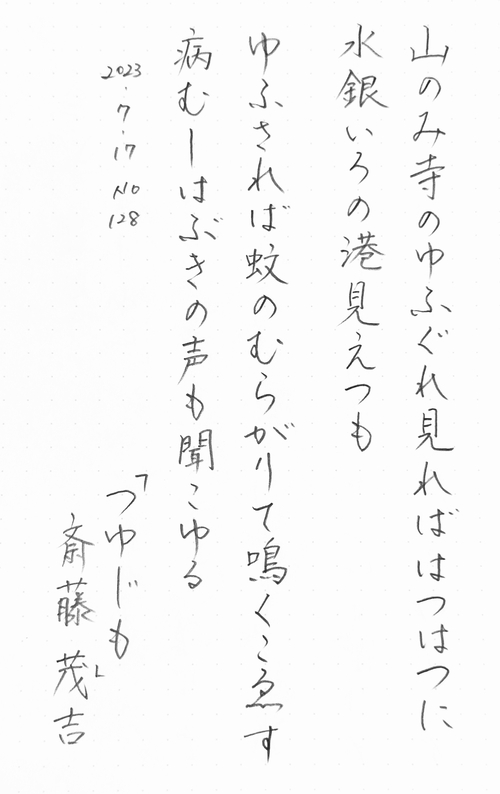 山のみ寺のゆふぐれ見ればはつはつに
水銀いろの港見えつも
ゆふされば蚊のむらがりて鳴くこゑす
病むしはぶきの声も聞こゆる
2023
・
7
・
17
No
128
「つゆじも」
斎藤茂吉